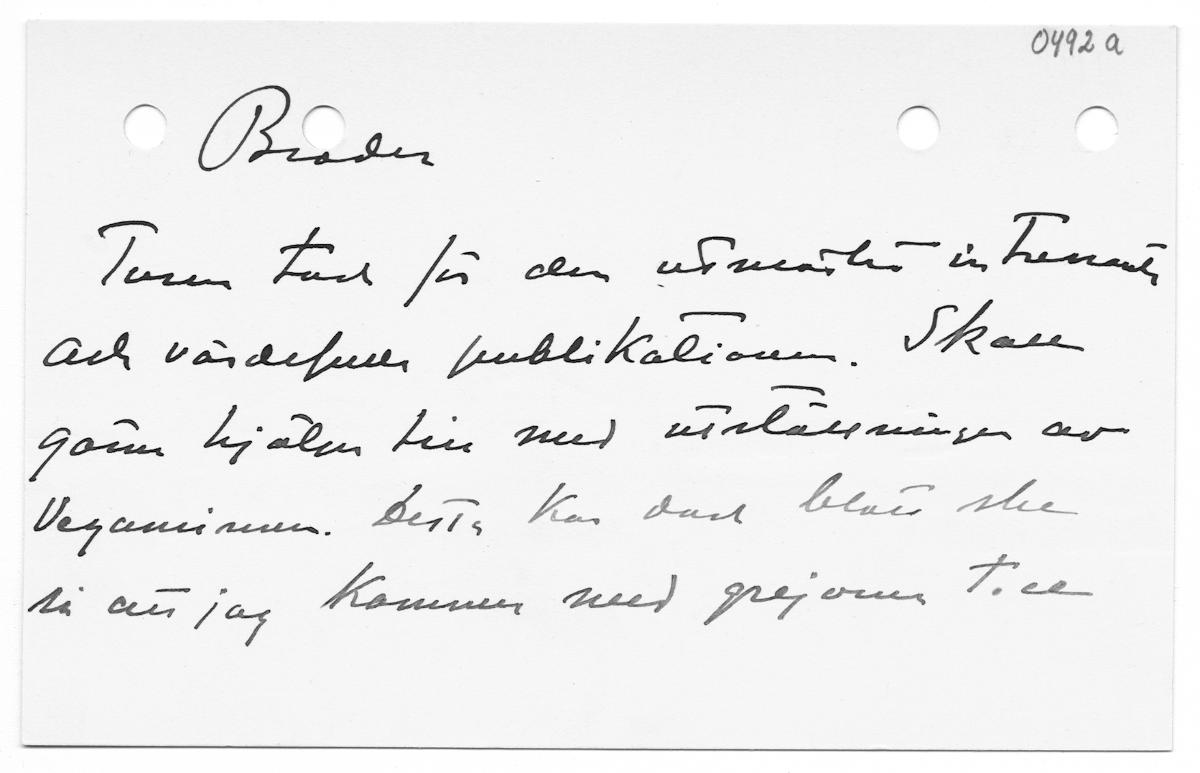 0492 a
Broder
Tusen tack för den utmärkta intressanta
och värdefulla publikationen. Skall
gärna hjälpa till med utställningen av
Detta kan dock blott ske
så att jag kommer med grejorna till